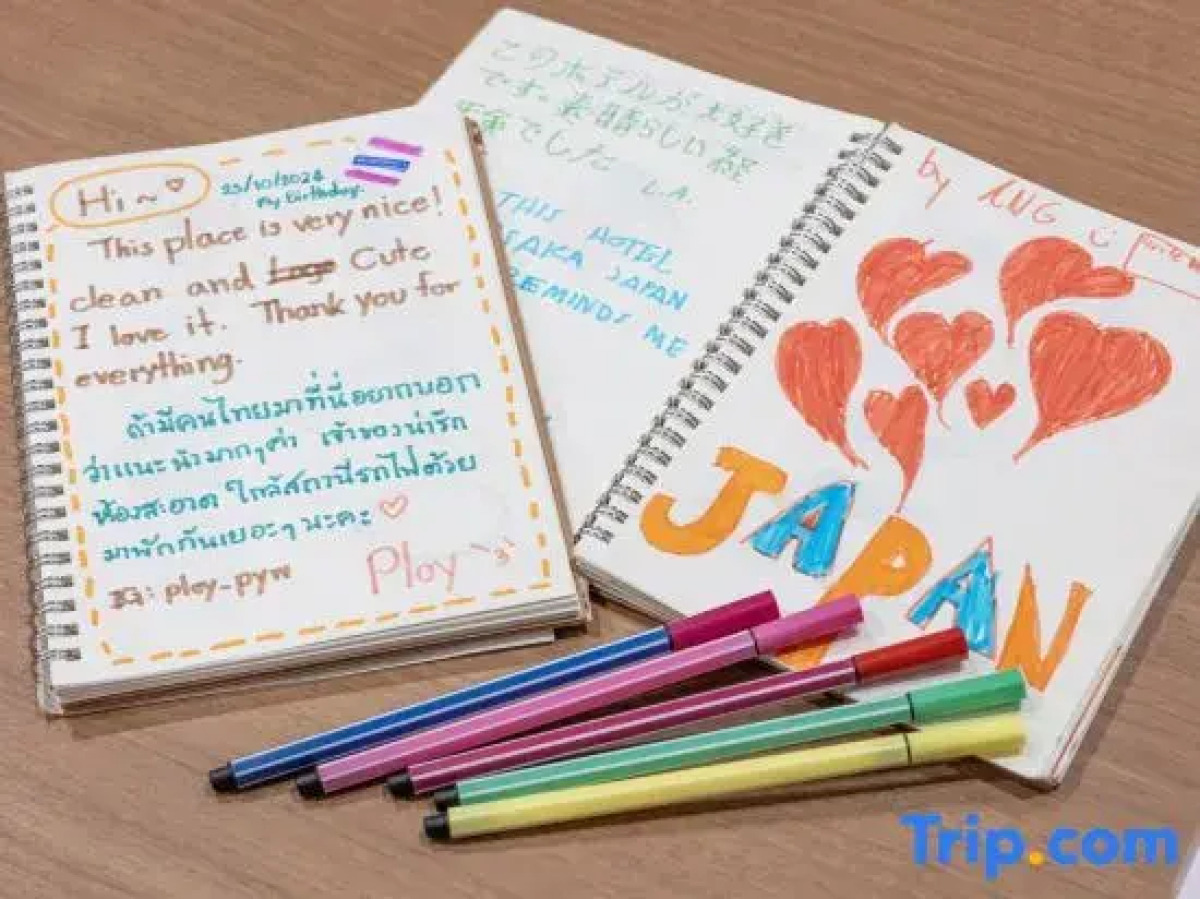 Hi ~
25/10/2024
My birthday.
This place is very nice!
clean and Cute
I love it. Thank you for
everything.
ถ้ามีคนไทยมาที่นี่อยากบอก
ว่าแนะนำมากๆค่ะ เจ้าของน่ารัก
ห้องสะอาด ใกล้สถานีรถไฟด้วย
มาพักกันเยอะๆ นะคะ
IG: ploy-pyw
Ploy
このホテルが大好き
です。素晴らしい経
でした L.A.
THIS HOTEL
SAKA JAPAN
REMINDS ME
by
JAPAN
Trip.com